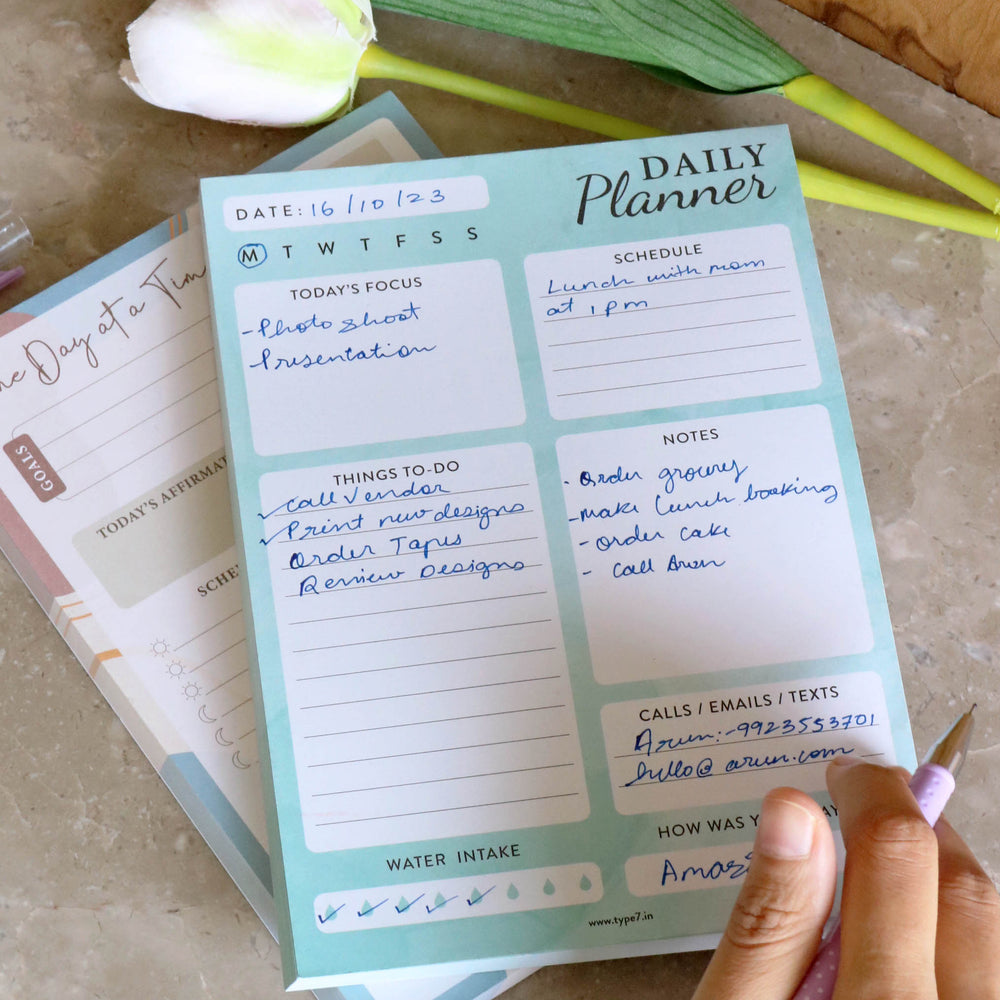 DAILY
Planner
DATE: 16/10/23
M T W T F S S
TODAY'S FOCUS
- Photo shoot
- Presentation
SCHEDULE
Lunch with mom
at 1 pm
THINGS TO-DO
✓ Call Vendor
✓ Print new designs
Order Tapes
Review Designs
NOTES
- Order grocery
- make lunch booking
- order cake
- Call Arun
CALLS / EMAILS / TEXTS
Arun:-9923553701
hello@arun.com
WATER INTAKE
HOW WAS
www.type7.in
Day at a
GOALS
TODAY'S